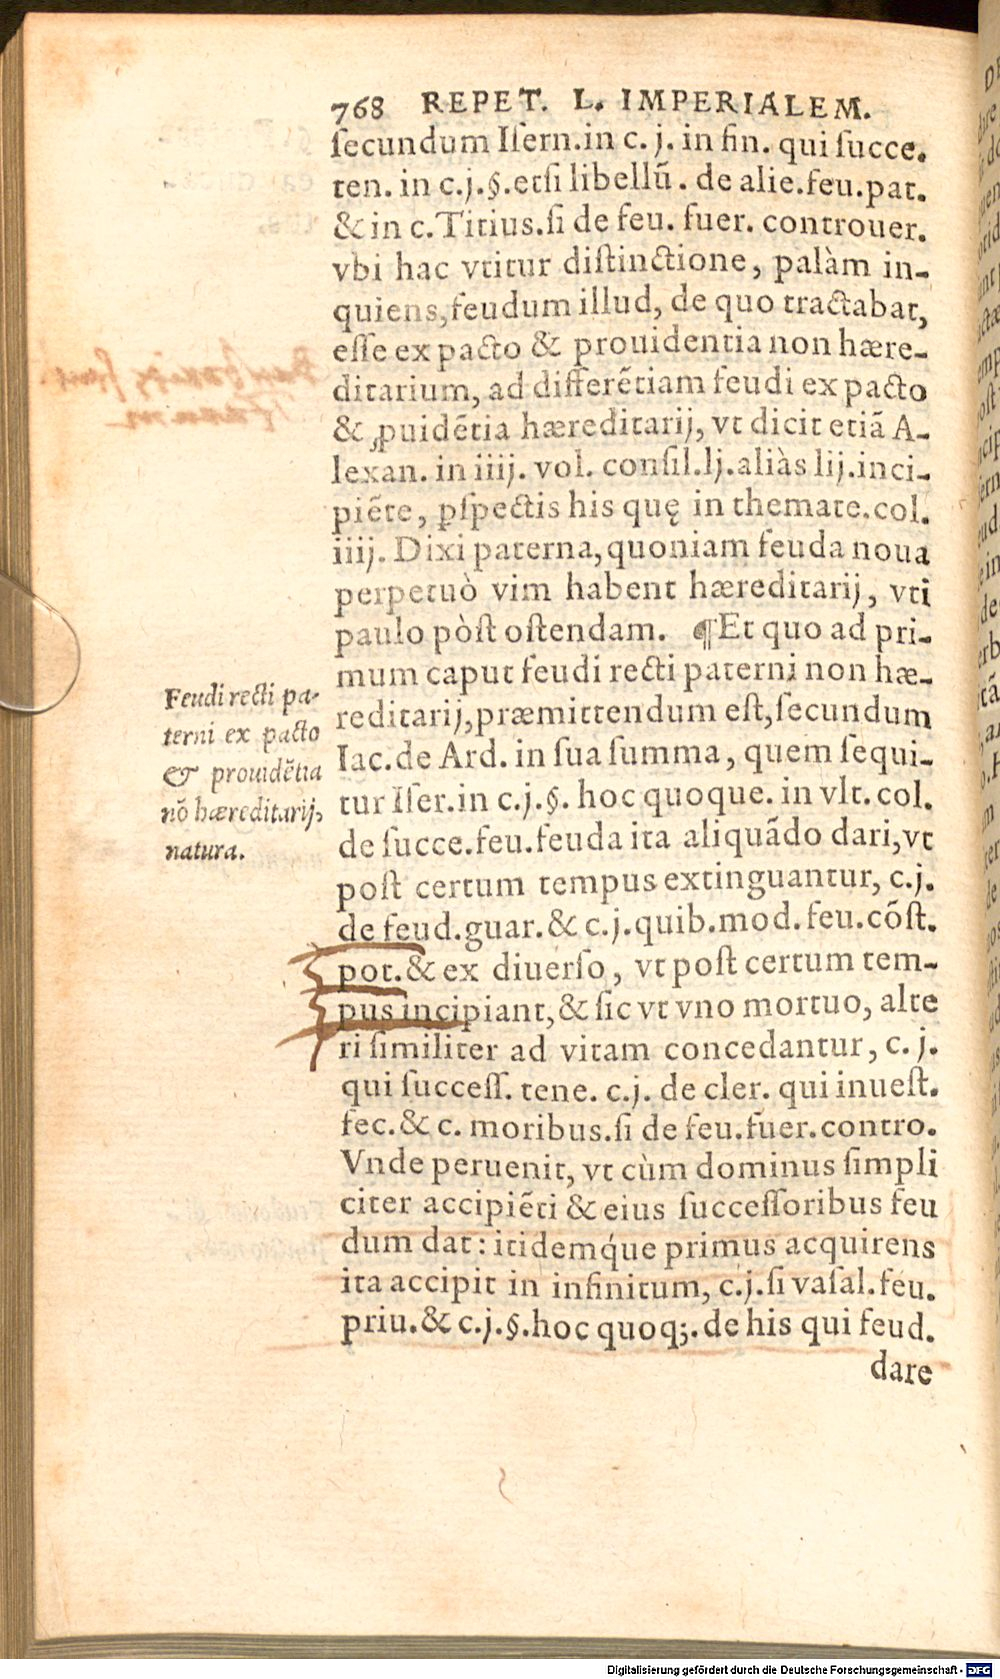 768 REPET. L. IMPERIALEM.
ſecundum Iſern.in c. j. in fin. qui ſucce.
ten. in c.j.§.etſi libellū. de alie.feu.pat.
& in c.Titius.ſi de feu. fuer. controuer.
vbi hac vtitur diſtinctione, palàm in-
quiens,feudum illud, de quo tractabat,
eſſe ex pacto & prouidentia non hære-
ditarium, ad differētiam feudi ex pacto
& ꝓuidētia hæreditarij, vt dicit etiā A-
lexan. in iiij. vol. conſil.lj.aliàs lij.inci-
piēte, pſpectis his quę in themate.col.
iiij. Dixi paterna,quoniam feuda noua
perpetuò vim habent hæreditarij, vti
paulo pòſt oſtendam. ¶Et quo ad pri-
mum caput feudi recti paterni non hæ-
reditarij,præmittendum eſt,ſecundum
Iac.de Ard. in ſua ſumma, quem ſequi-
tur Iſer.in c.j.§. hoc quoque. in vlt. col.
de ſucce.feu.feuda ita aliquādo dari,vt
poſt certum tempus extinguantur, c.j.
de feud.guar.& c.j.quib.mod.feu.cōſt.
pot.& ex diuerſo, vt poſt certum tem-
pus incipiant,& ſic vt vno mortuo, alte
ri ſimiliter ad vitam concedantur, c. j.
qui ſucceſſ. tene. c.j. de cler. qui inueſt.
fec.& c. moribus.ſi de feu.fuer.contro.
Vnde peruenit, vt cùm dominus ſimpli
citer accipiēti & eius ſucceſſoribus feu
dum dat: itidemq́ue primus acquirens
ita accipit in infinitum, c.j.ſi vaſal.feu.
priu.& c.j.§.hoc quoq;.de his qui feud.
dare
Feudi recti pa-
terni ex pacto
& prouidētia
nō hæreditarij,
natura.
Digitalisierung gefördert durch die Deutsche Forschungsgemeinschaft - DFG